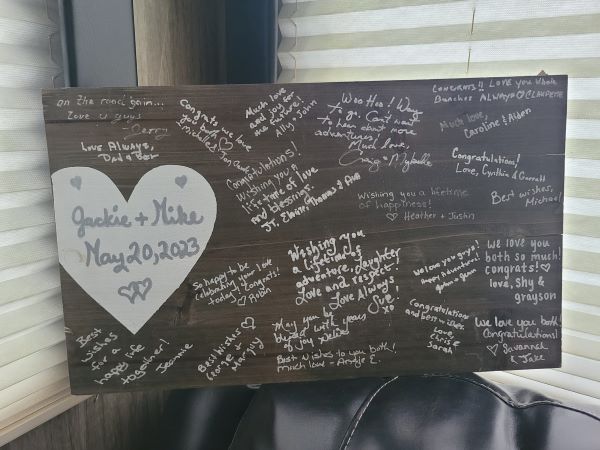 on the
Love u guys
Jerry
Love Always,
Dad & Bev
Jackie + Mike
May 20, 2023
Best
wishes
for a
happy life
together!
Jeannie
Congrats
we love
you both
Much love
and joy for
the future!
Ally + John
Congratulations!
Wishing you a
lifetime of love
and blessings.
Woo Hoo! Way
to go. Can't wait
to hear about more
adventures!
Much love,
Craig + Mybelle
Congrats!! Love you whole
Bunches Always
Much love,
Caroline & Aiden
Congratulations!
Love, Cynthia & Garrett
Wishing you a lifetime
of happiness!
Heather + Justin
Best wishes,
Michael
So happy to be
celebrating your love
today! Congrats!
Robin
Wishing you
a lifetime of
adventure, laughter
Love and respect!
Love Always,
Sue
xo
We love you guys!
Happy Adventures!
We love you
both so much!
congrats!
love, shy &
grayson
Best Wishes
George
Marjory
May you be
blessed with years
of joy
Best wishes to you both!
much love - Angie E.
Congratulations
and best wishes
Love
Chris &
Sarah
We love you both
Congratulations!
Savannah
& Jake